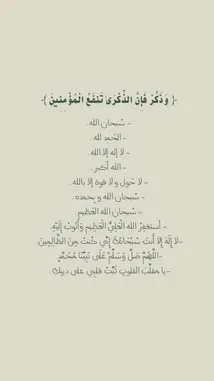 -{ وَذَكِّرْ فَإِنَّ الذِّكْرَىٰ تَنْفَعُ الْمُؤْمِنِينَ }-
- سُبحان الله .
- الحَمد لله .
- لا إله إلا الله .
- الله أكبر .
- لا حَول و لا قوة إلا بالله .
- سُبحان الله و بِحمده .
- سُبحان الله العَظيم .
- أَستغفِرُ الله الْعَلِيَّ الْعَظِيم وَأَتُوبُ إِلَيْهِ .
-لَا إِلَهَ إِلا أَنتَ سُبْحَانَكَ إِنّي كُنْتُ مِنَ الظَّالِمِينَ.
-اللَّهُمَّ صَلِّ وَسَلِّمْ عَلَى نَبِيِّنَا مُحَمَّدٍ
-يا مقلّب القلوب ثَبِّتْ قلبي على دينك